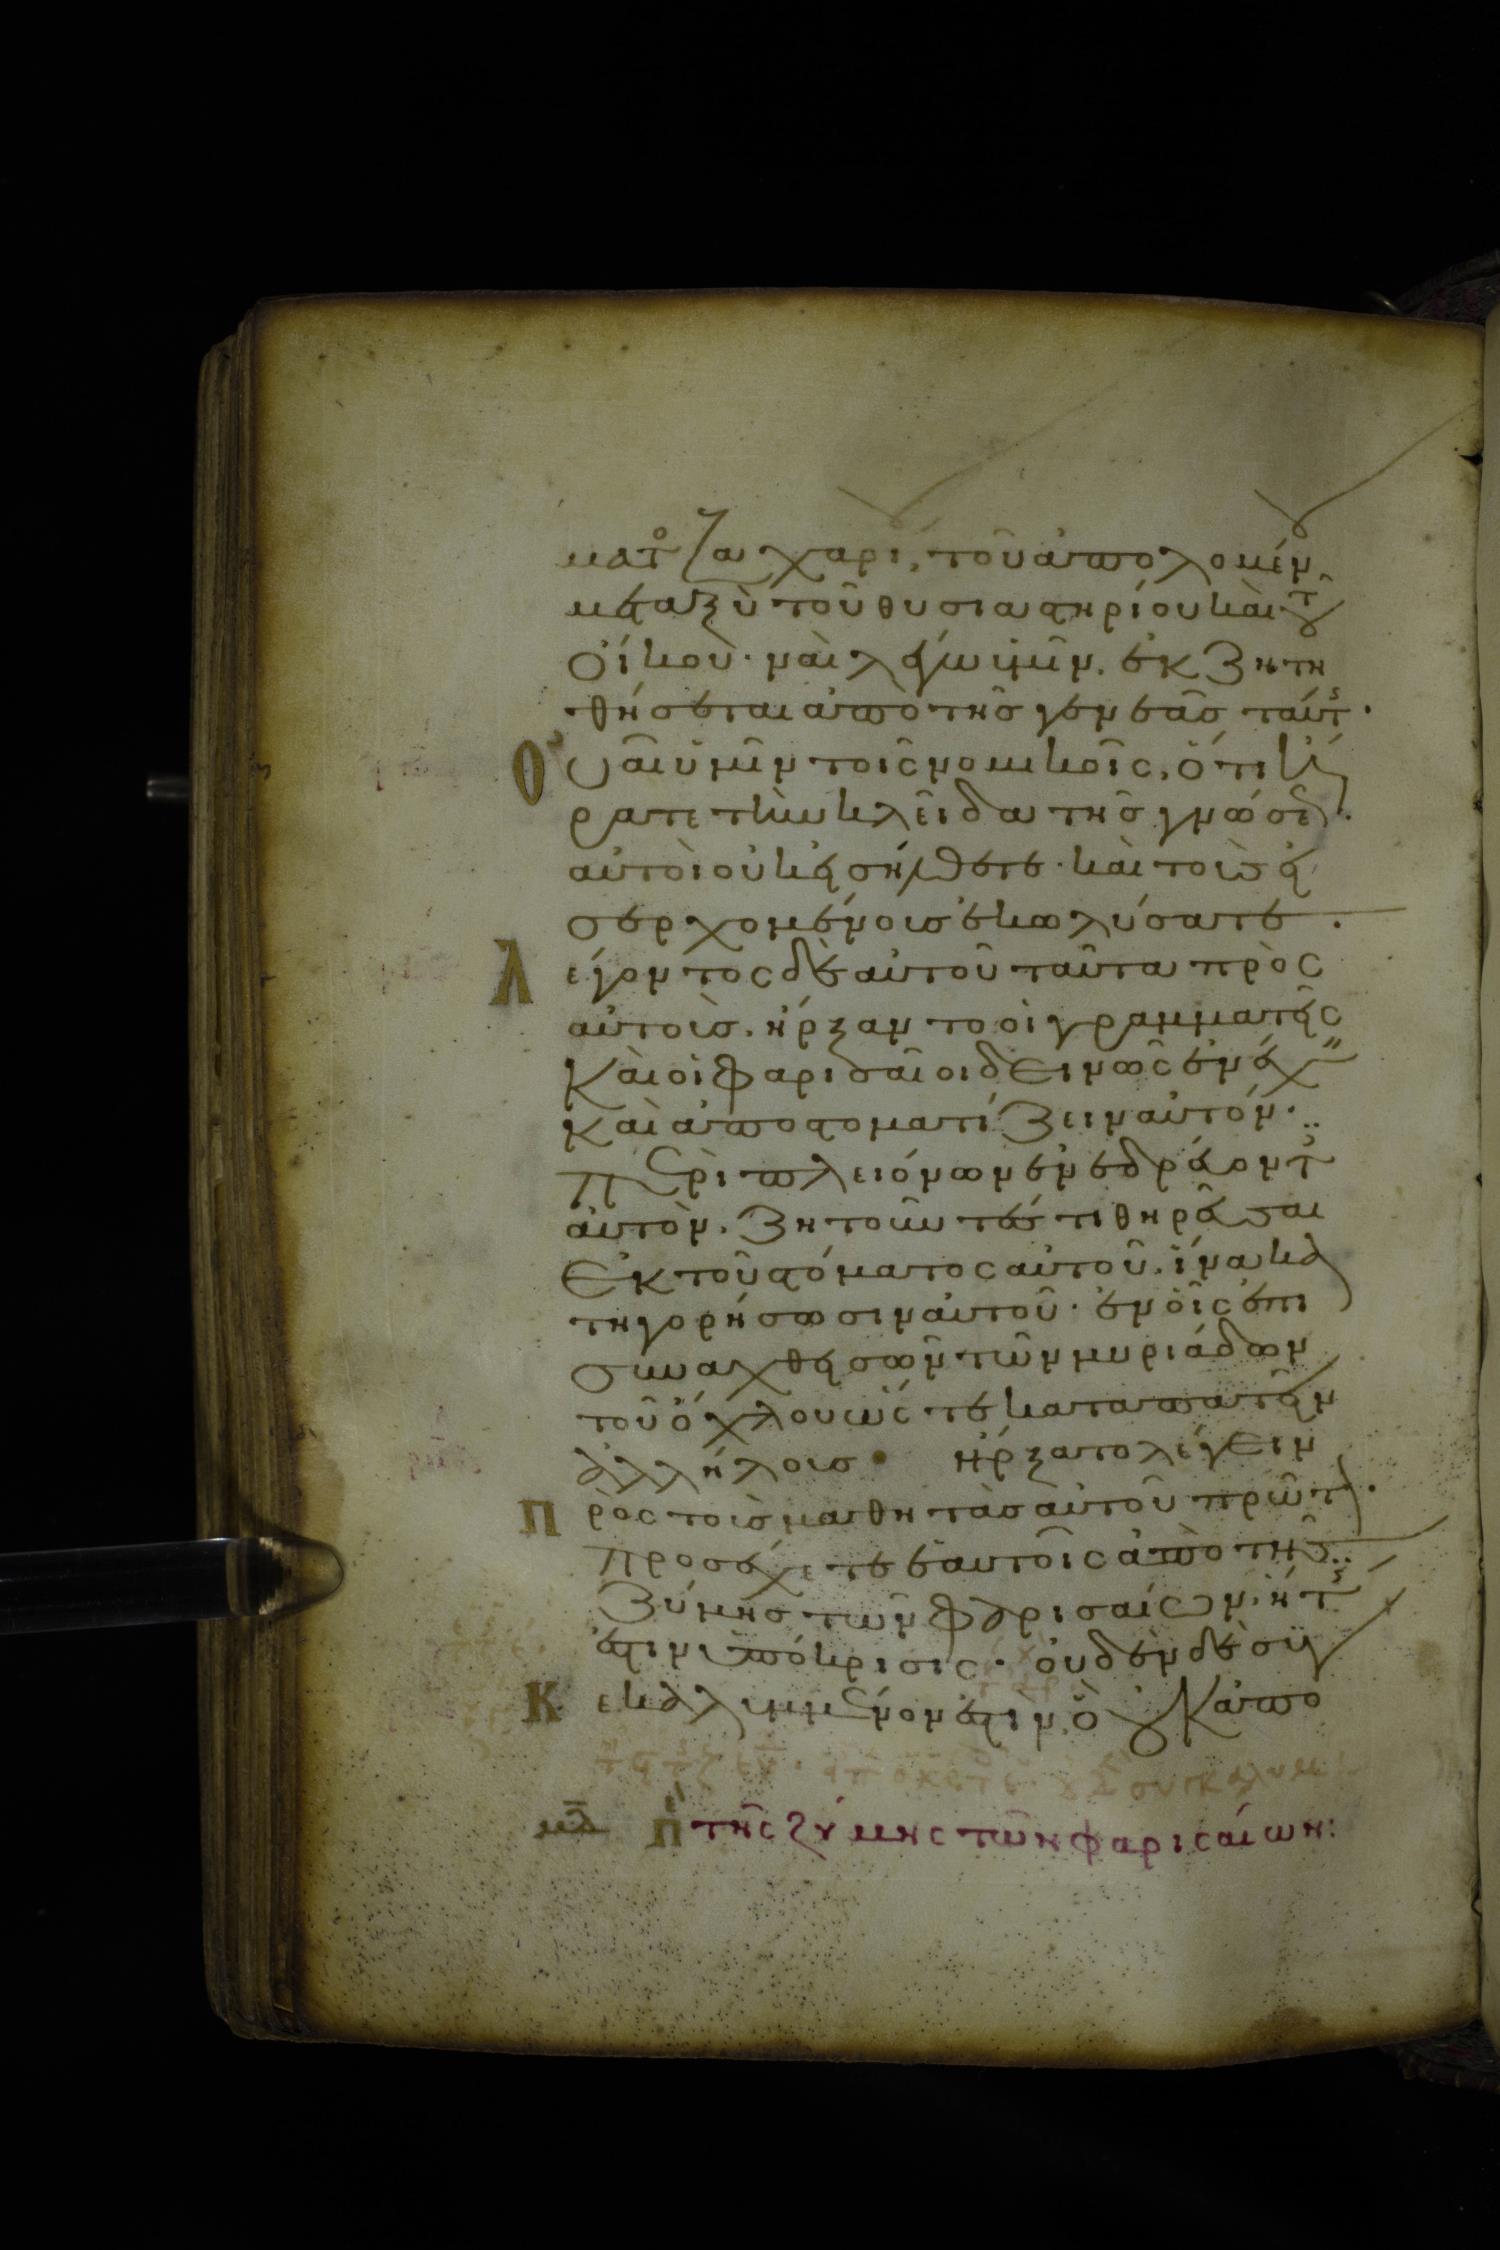 ματο ζαχαρίου τοῦ ἀπολομέν
μεταξὺ τοῦ θυσιαστηρίου καὶ τοῦ
οἴκου· ναὶ λέγω ὑμῖν. ἐκζητη
θήσεται ἀπὸ τῆς γενεᾶς ταύτης·
Οὐαὶ ὑμῖν τοῖς νομικοῖς, ὅτι ἤ
ρατε τὴν κλεῖδα τῆς γνώσεως·
αὐτοὶ οὐκ εἰσήλθετε· καὶ τοὺς εἰ
σερχομένους ἐκωλύσατε·
Λέγοντος δὲ αὐτοῦ ταῦτα πρὸς
αὐτούς. ἤρξαντο οἱ γραμματεῖς
καὶ οἱ φαρισαῖοι δεινῶς ἐνέχειν
καὶ ἀποστοματίζειν αὐτόν·
περὶ πλειόνων ἐνεδρεύοντες
αὐτόν. ζητοῦντές τι θηρεῦσαι
ἐκ τοῦ στόματος αὐτοῦ. ἵνα κα
τηγορήσωσιν αὐτοῦ· ἐν οἷς ἐπι
συναχθεισῶν τῶν μυριάδων
τοῦ ὄχλου ὥστε καταπατεῖν
ἀλλήλους· ἤρξατο λέγειν
Πρὸς τοὺς μαθητὰς αὐτοῦ πρῶτον·
προσέχετε ἑαυτοῖς ἀπὸ τῆς
ζύμης τῶν φαρισαίων. ἥτις
ἐστιν ὑπόκρισις· οὐδὲν δὲ συγ
Κεκαλυμμένον ἐστιν, ὃ οὐκ ἀπο
μδ Π τῆς ζύμης τῶν φαρισαίων: